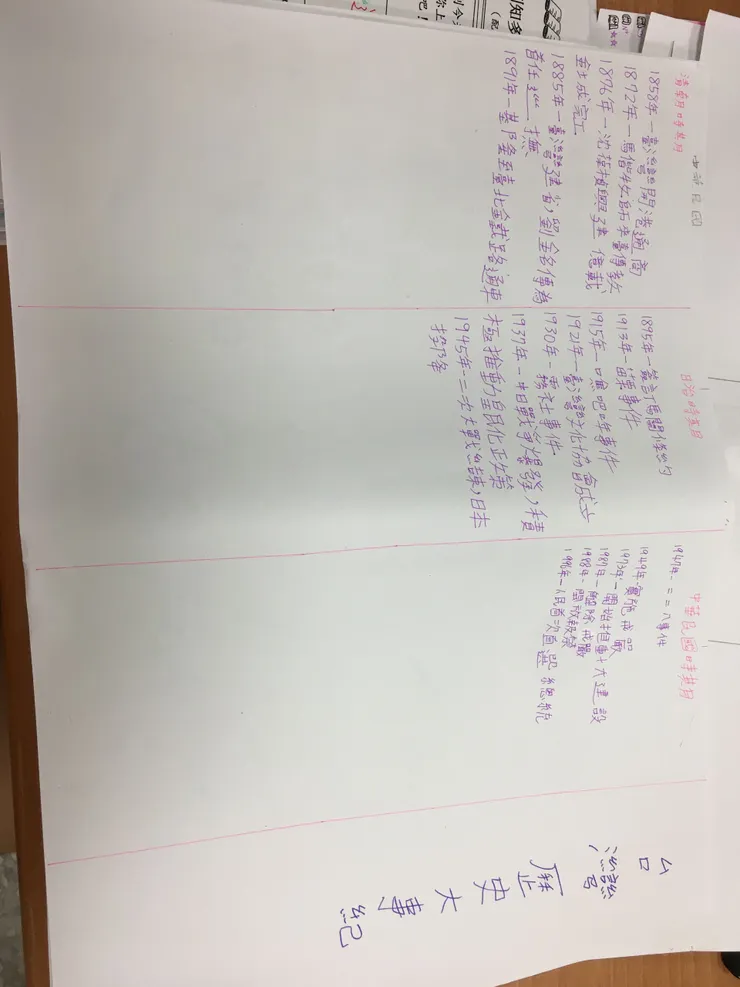 台灣歷史大事紀
清朝時期
1858年一臺灣開港通商
1872年一馬偕牧師來臺傳教
1876年一沈葆楨興建億載
金城完工
1885年一臺灣建省，劉銘傳為
首任巡撫、
1891年一基隆至臺北鐵路通車
日治時期
1895年一簽訂馬關條約
1913年一事件
1915年一噍吧哖事件
1921年一臺灣文化協會成立
1930年一霧社事件
1937年一中日戰爭爆發，積
極推動皇民化政策
1945年二次大戰結束，日本
投降
中華民國時期
1947年一二二八事件
1949年實施戒嚴
1973年一開始推動十大建設
1987年一解除戒嚴
1988年一開放報禁
1996年一人民首次直選總統
知多
(配
吧!